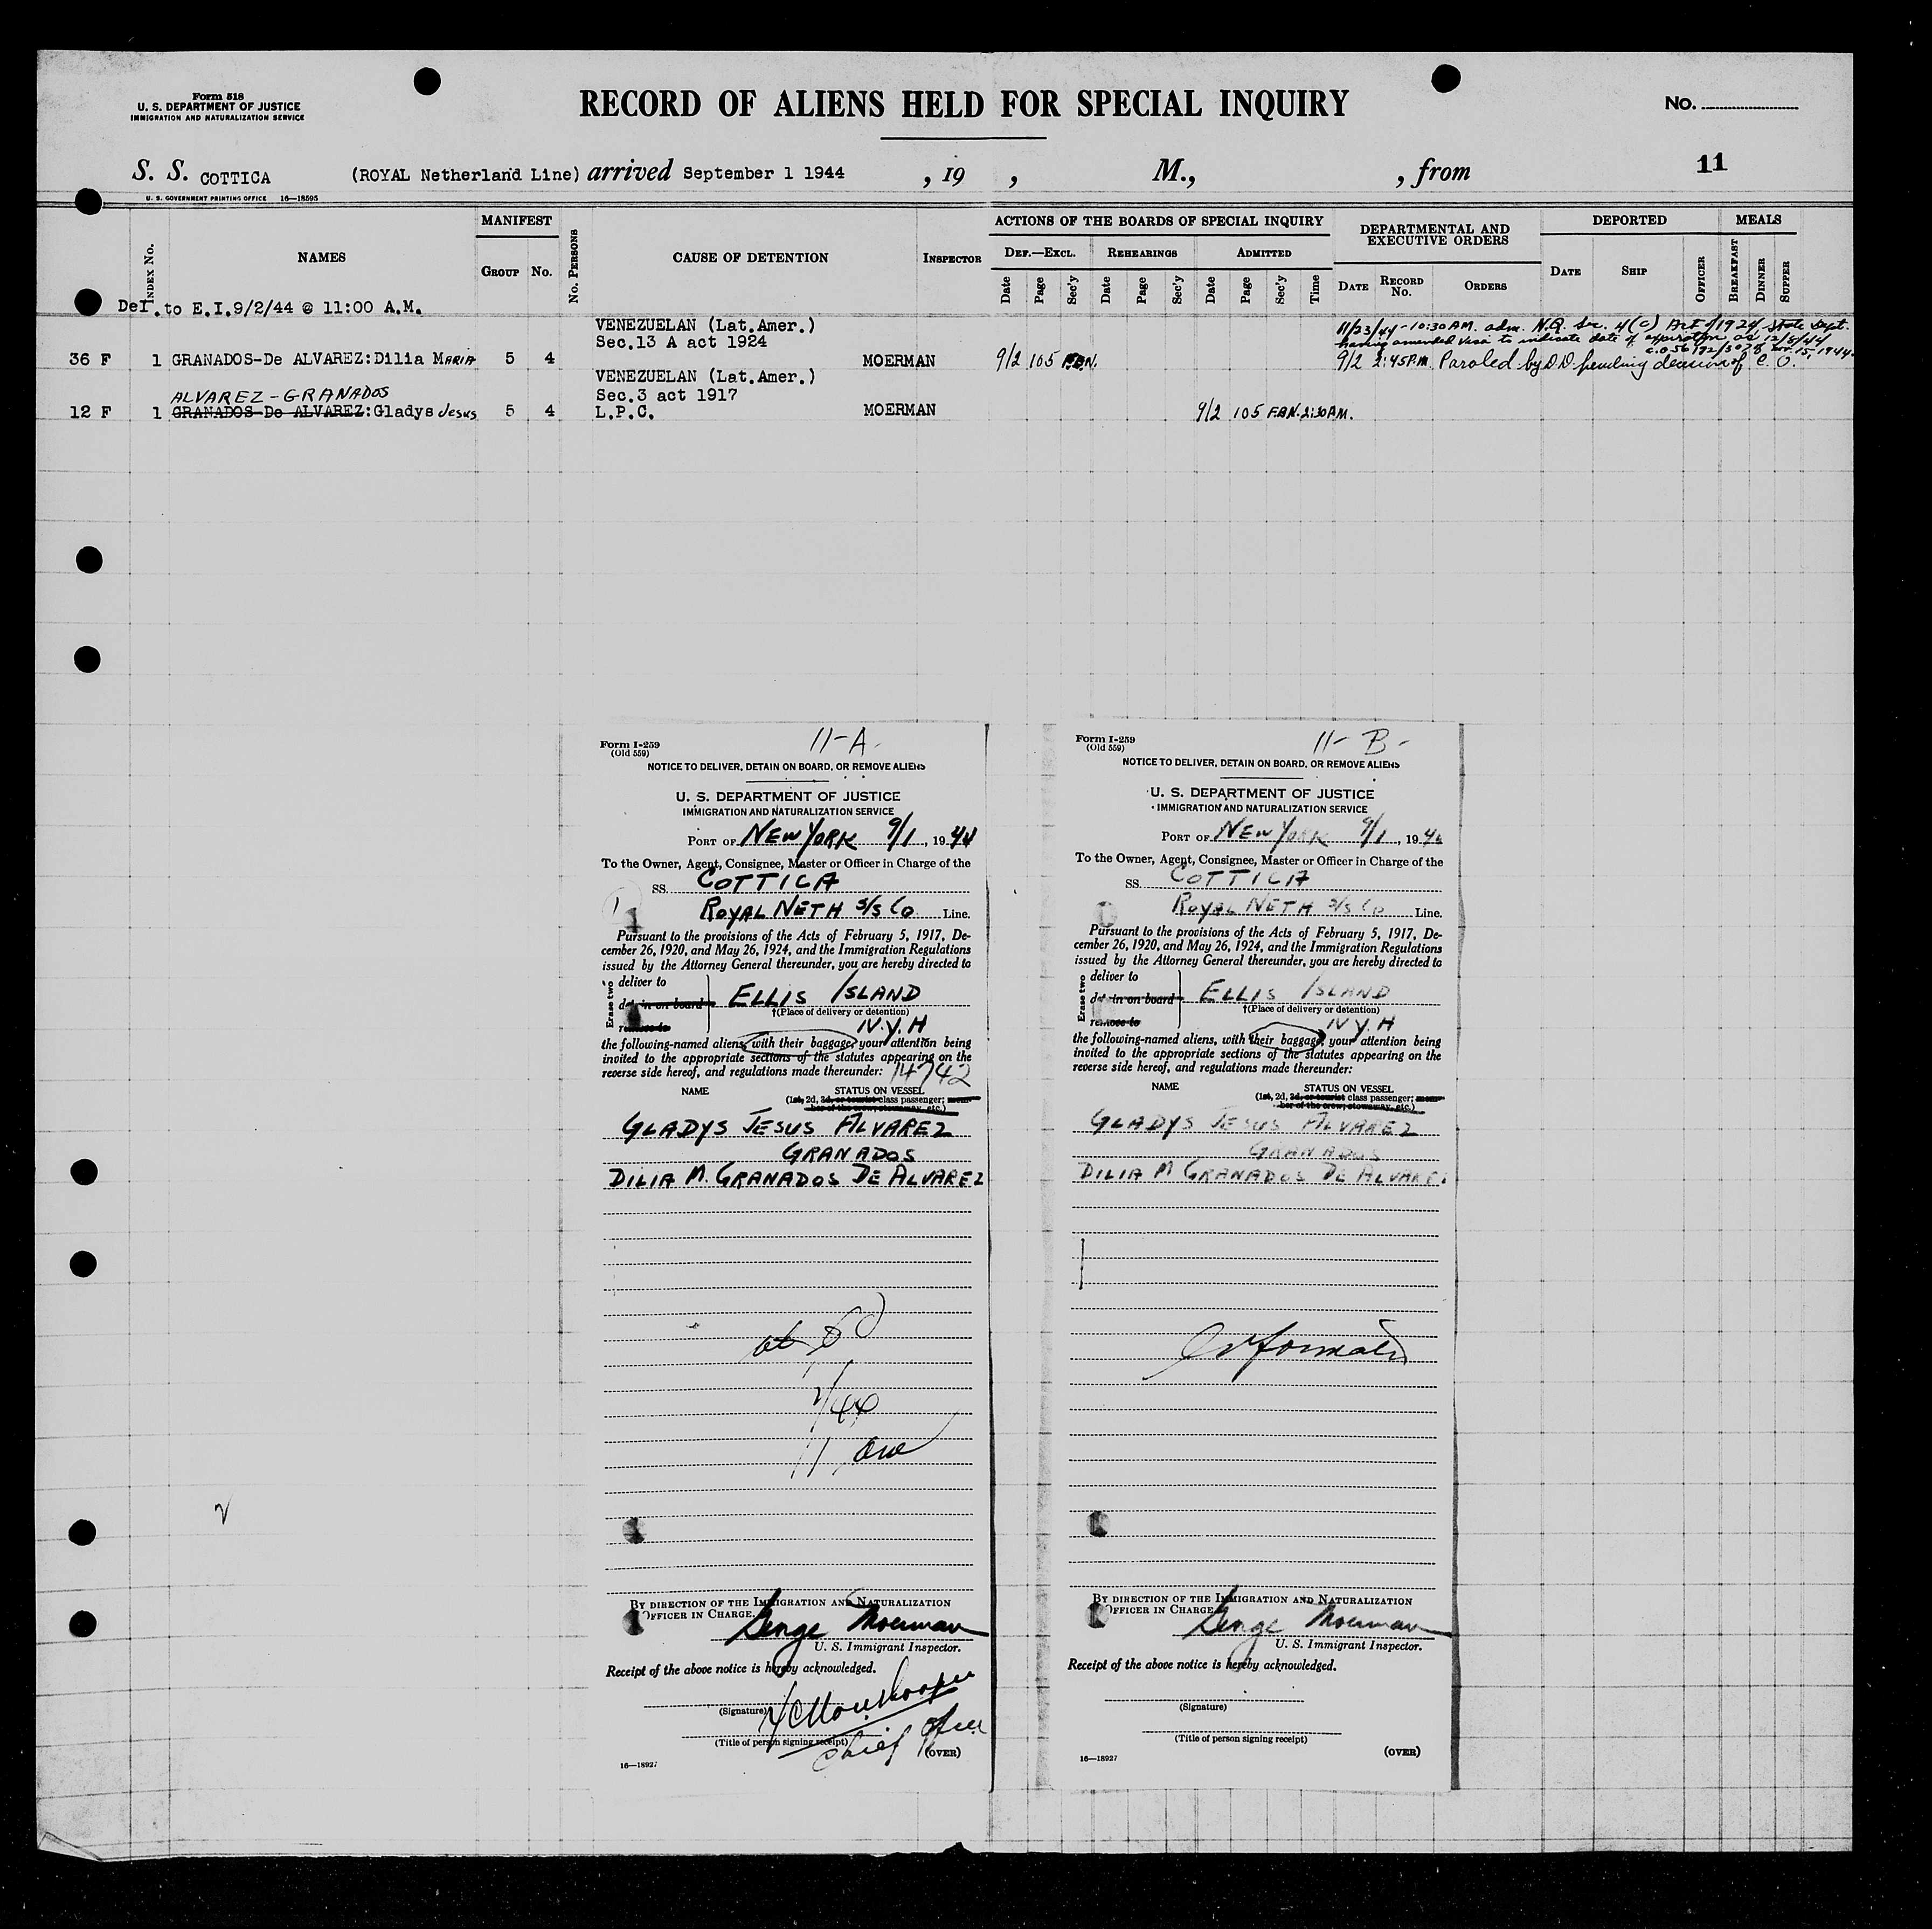 Form 518
U. S. DEPARTMENT OF JUSTICE
IMMIGRATION AND NATURALIZATION SERVICE
RECORD OF ALIENS HELD FOR SPECIAL INQUIRY
No.
S. S. COTTICA (ROYAL Netherland Line) arrived September 1 1944 , 19 , M., , from 11
U. S. GOVERNMENT PRINTING OFFICE 16—18595
INDEX No.
NAMES
MANIFEST
GROUP
No.
No. PERSONS
CAUSE OF DETENTION
INSPECTOR
ACTIONS OF THE BOARDS OF SPECIAL INQUIRY
DEF.—EXCL.
REHEARINGS
ADMITTED
Date Page Sec'y Date Page Sec'y Date Page Sec'y Time
DEPARTMENTAL AND
EXECUTIVE ORDERS
DATE
RECORD
No.
ORDERS
DEPORTED
DATE
SHIP
OFFICER
MEALS
BREAKFAST
DINNER
SUPPER
Def. to E.I.9/2/44 @ 11:00 A.M.
VENEZUELAN (Lat.Amer.)
Sec.13 A act 1924
11/23/44 - 10:30 AM. adm. N.Q. Sec. 4(c) Act of 1924, State Dept.
having amended visa to indicate date of expiration as 12/5/44
36 F 1 GRANADOS-De ALVAREZ:Dilia MARIA 5 4 MOERMAN 9/2 105 F.B.N. 9/2 2:45 P.M. Paroled by D.D. pending decision of C. O.
VENEZUELAN (Lat.Amer.)
Sec.3 act 1917
ALVAREZ-GRANADOS
12 F 1 GRANADOS-De ALVAREZ:Gladys Jesus 5 4 L.P.C. MOERMAN 9/2 105 F.B.N. 2:30 P.M.
Form I-259
(Old 559)
11-A-
NOTICE TO DELIVER, DETAIN ON BOARD, OR REMOVE ALIENS
U. S. DEPARTMENT OF JUSTICE
IMMIGRATION AND NATURALIZATION SERVICE
PORT OF NEW YORK 9/1, 19 44
To the Owner, Agent, Consignee, Master or Officer in Charge of the
SS. COTTICA
ROYAL NETH S/S Co Line.
Pursuant to the provisions of the Acts of February 5, 1917, De-
cember 26, 1920, and May 26, 1924, and the Immigration Regulations
issued by the Attorney General thereunder, you are hereby directed to
Erase two
deliver to
detain on board
remove to
ELLIS ISLAND
†(Place of delivery or detention)
N.Y.H
the following-named aliens, with their baggage, your attention being
invited to the appropriate sections of the statutes appearing on the
reverse side hereof, and regulations made thereunder: 14742
NAME
STATUS ON VESSEL
(1st, 2d, 3d, or tourist class passenger; mem-
ber of the crew; stowaway, etc.)
GLADYS JESUS ALVAREZ
GRANADOS
DILIA M. GRANADOS DE ALVAREZ
BY DIRECTION OF THE IMMIGRATION AND NATURALIZATION
OFFICER IN CHARGE.
George Moerman
U. S. Immigrant Inspector.
Receipt of the above notice is hereby acknowledged.
(Signature)
(Title of person signing receipt)
chief officer
(OVER)
16—18927
Form I-259
(Old 559)
11-B-
NOTICE TO DELIVER, DETAIN ON BOARD, OR REMOVE ALIENS
U. S. DEPARTMENT OF JUSTICE
IMMIGRATION AND NATURALIZATION SERVICE
PORT OF NEW YORK 9/1, 19 44
To the Owner, Agent, Consignee, Master or Officer in Charge of the
SS. COTTICA
ROYAL NETH S/S Co Line.
Pursuant to the provisions of the Acts of February 5, 1917, De-
cember 26, 1920, and May 26, 1924, and the Immigration Regulations
issued by the Attorney General thereunder, you are hereby directed to
Erase two
deliver to
detain on board
remove to
ELLIS ISLAND
†(Place of delivery or detention)
N.Y.H
the following-named aliens, with their baggage, your attention being
invited to the appropriate sections of the statutes appearing on the
reverse side hereof, and regulations made thereunder:
NAME
STATUS ON VESSEL
(1st, 2d, 3d, or tourist class passenger; mem-
ber of the crew; stowaway, etc.)
GLADYS JESUS ALVAREZ
GRANADOS
DILIA M GRANADOS DE ALVAREZ
BY DIRECTION OF THE IMMIGRATION AND NATURALIZATION
OFFICER IN CHARGE.
George Moerman
U. S. Immigrant Inspector.
Receipt of the above notice is hereby acknowledged.
(Signature)
(Title of person signing receipt)
16—18927
(OVER)